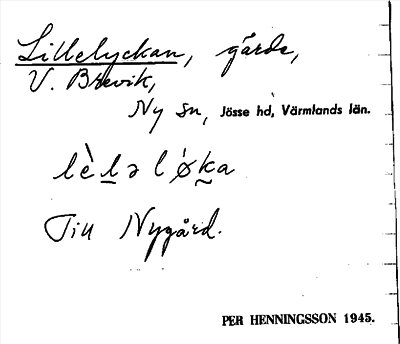 Lillelyckan, gårds,
V. Brevik,
Ny sn, Jösse hd, Värmlands län.
lèlə lǿka
Till Nygård.
PER HENNINGSSON 1945.